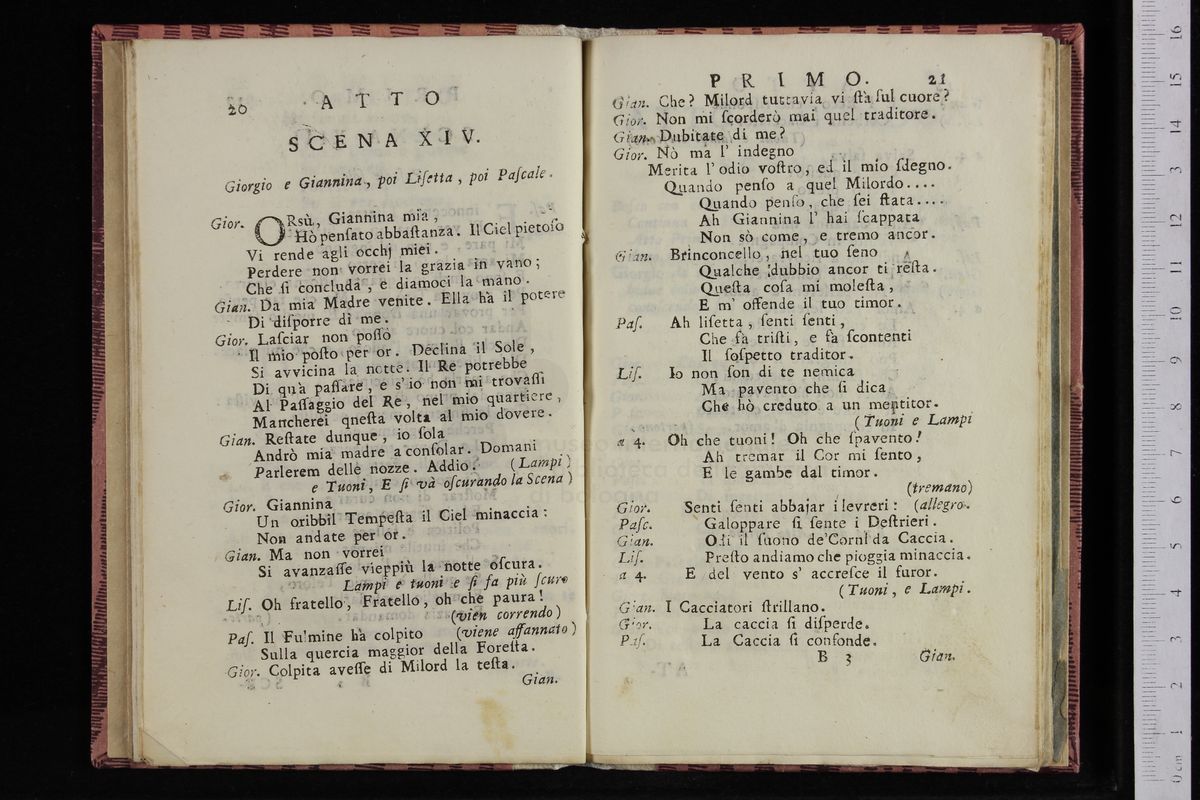 20 ATTO
SCENA XIV.
Giorgio e Giannina, poi Liſetta, poi Paſcale.
Gior. ORsù, Giannina mia,
Hò penſato abbaſtanza. Il Ciel pietoſo
Vi rende agli occhj miei.
Perdere non vorrei la grazia in vano;
Che ſi concluda, e diamoci la mano.
Gian. Da mia Madre venite. Ella hà il potere
Di diſporre di me.
Gior. Laſciar non poſſo
Il mio poſto per or. Declina il Sole,
Si avvicina la notte. Il Re potrebbe
Di quà paſſare, e s'io non mi trovaſſi
Al Paſſaggio del Re, nel mio quartiere,
Mancherei qneſta volta al mio dovere.
Gian. Reſtate dunque, io ſola
Andrò mia madre a conſolar. Domani
Parlerem delle nozze. Addio. (Lampi)
e Tuoni, E ſi và oſcurando la Scena)
Gior. Giannina
Un orribbil Tempeſta il Ciel minaccia:
Non andate per or.
Gian. Ma non vorrei
Si avanzaſſe vieppiù la notte oſcura.
Lampi e tuoni e ſi fa più ſcuro
Liſ. Oh fratello, Fratello, oh che paura!
(vien correndo)
Paſ. Il Fulmine hà colpito (viene affannato)
Sulla quercia maggior della Foreſta.
Gior. Colpita aveſſe di Milord la teſta.
Gian.
PRIMO. 21
Gian. Che? Milord tuttavia vi ſtà ſul cuore?
Gior. Non mi ſcorderò mai quel traditore.
Gian. Dubitate di me?
Gior. Nò ma l' indegno
Merita l'odio voſtro, ed il mio ſdegno.
Quando penſo a quel Milordo....
Quando penſo, che ſei ſtata....
Ah Giannina l' hai ſcappata
Non sò come, e tremo ancor.
Gian. Brinconcello, nel tuo ſeno
Qualche dubbio ancor ti reſta.
Queſta coſa mi moleſta,
E m' offende il tuo timor.
Paſ. Ah liſetta, ſenti ſenti,
Che fà triſti, e fà ſcontenti
Il ſoſpetto traditor.
Liſ. Io non ſon di te nemica
Ma pavento che ſi dica
Che hò creduto a un mentitor.
(Tuoni e Lampi
a 4. Oh che tuoni! Oh che ſpavento!
Ah tremar il Cor mi ſento,
E le gambe dal timor.
(tremano)
Gior. Senti ſenti abbajar i levreri: (allegro.
Paſc. Galoppare ſi ſente i Deſtrieri.
Gian. Odi il ſuono de'Corni da Caccia.
Liſ. Preſto andiamo che pioggia minaccia.
a 4. E del vento s' accreſce il furor.
(Tuoni, e Lampi.
Gian. I Cacciatori ſtrillano.
Gior. La caccia ſi diſperde.
Paſ. La Caccia ſi confonde.
B 3 Gian.